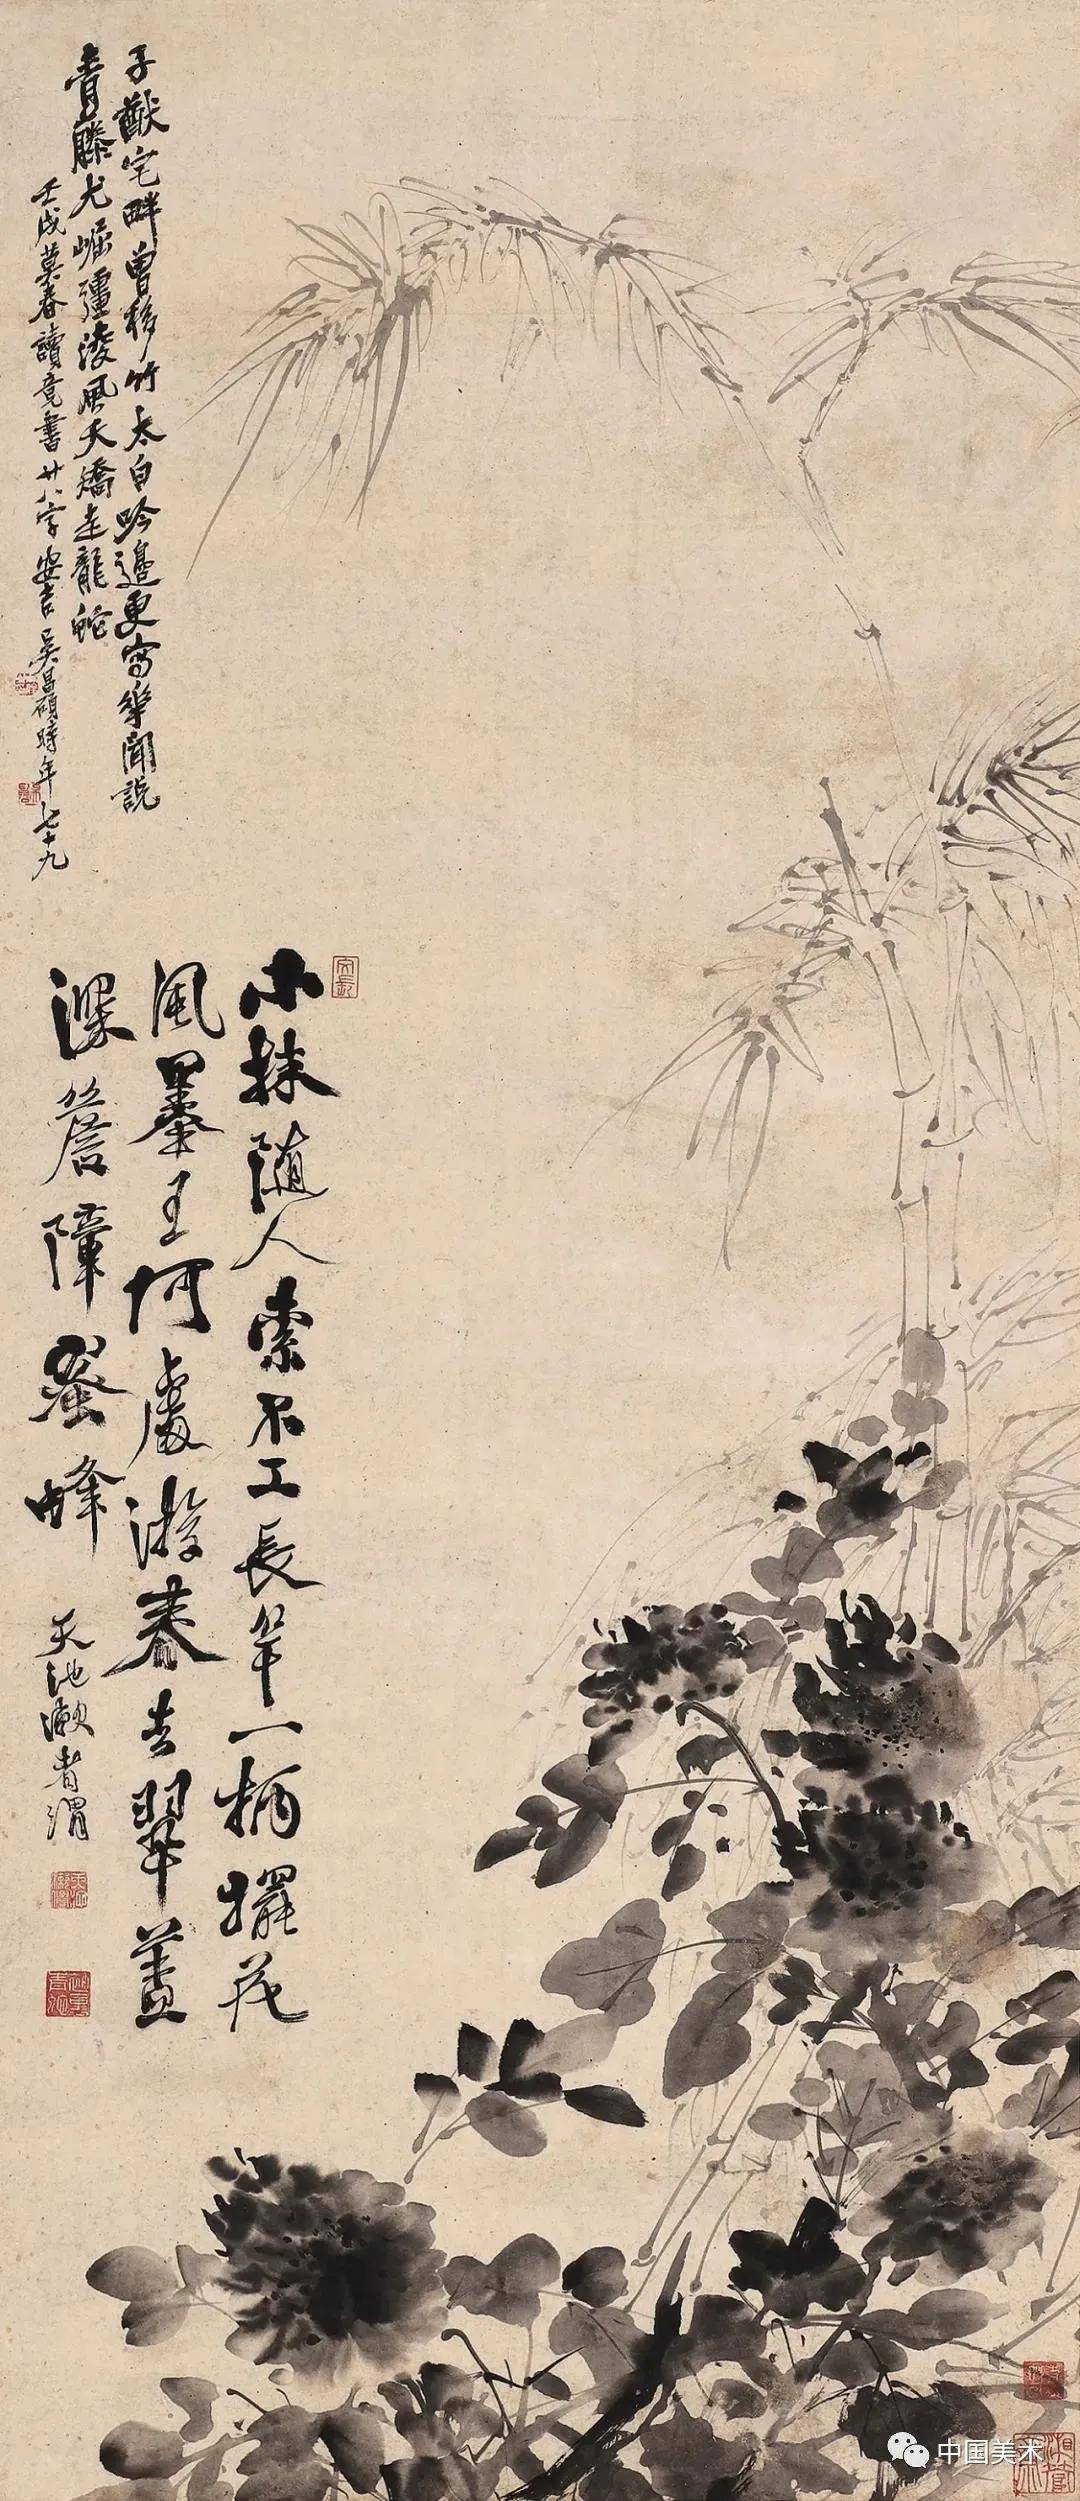 子猷宅畔曾移竹太白吟邊更寫華聞說
青藤尤崛彊淩風夭矯走龍蛇
壬戌莫春讀竟書廿八字安吉吳昌碩時年七十九
文長
小抹隨人索不工長竿一柄擺茂
風墨王何處游春去翠蓋
深簷障蜜蜂
天池漱者渭
中国美术